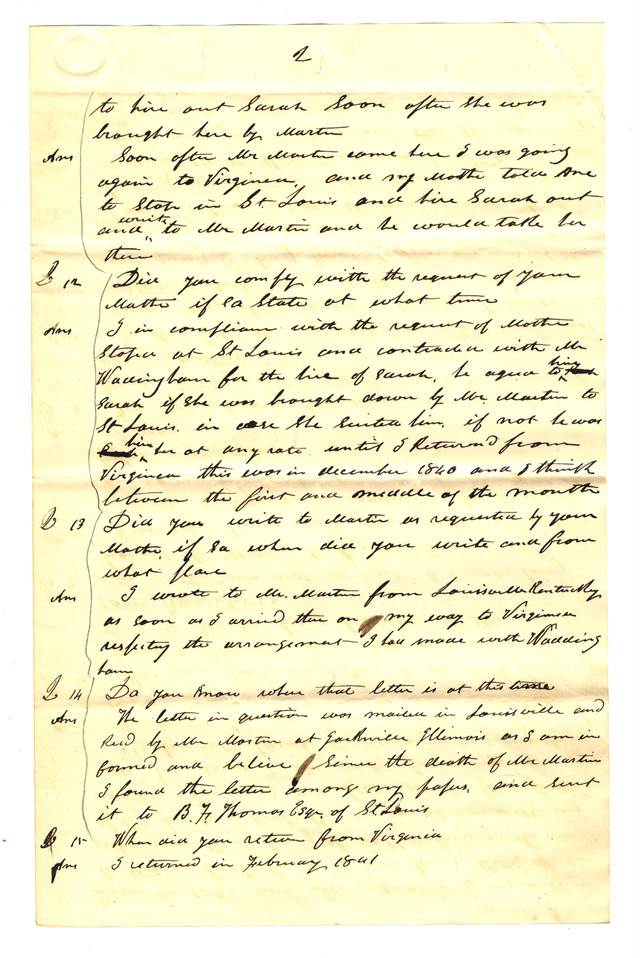 2
to hire out Sarah Soon after She was
brought here by Martin
Ans Soon after Mr Martin came here I was going
again to Virginea, and my Mothe told me
to Stop in St Louis and hire Sarah out
and write to Mr Martin and he would take her
there
Q 12 Did you comply with the request of your
Mothe if so State at what time
Ans I in compliance with the request of Mothe
Stoped at St Louis and contracted with Mr
Waddingham for the hire of Sarah, he agreed to hire
Sarah if She was brought down by Mr Martin to
St Louis. in case She Suited him, if not he was
hire her at any rate until I Returned from
Virginea this was in december 1840 and I think
between the first and middle of the month
Q 13 Did you write to Martin as requested by your
Mothe, if so when did you write and from
what place
Ans I wrote to Mr. Martin from Louisville Kentucky,
as soon as I arrived there on my way to Virginea
respecting the arrangement I had made with Wadding
ham
Q 14 Do you know where that letter is at this time
Ans The letter in question was mailed in Louisville and
Recd by Mr Martin at Jacksville Illinois as I am in
formed and belive Since the death of Mr Martin
I found the letter among my papers, and sent
it to B. F. Thomas Esqr. of St Louis
Q 15 When did you return from Virginea
Ans I returned in February 1841